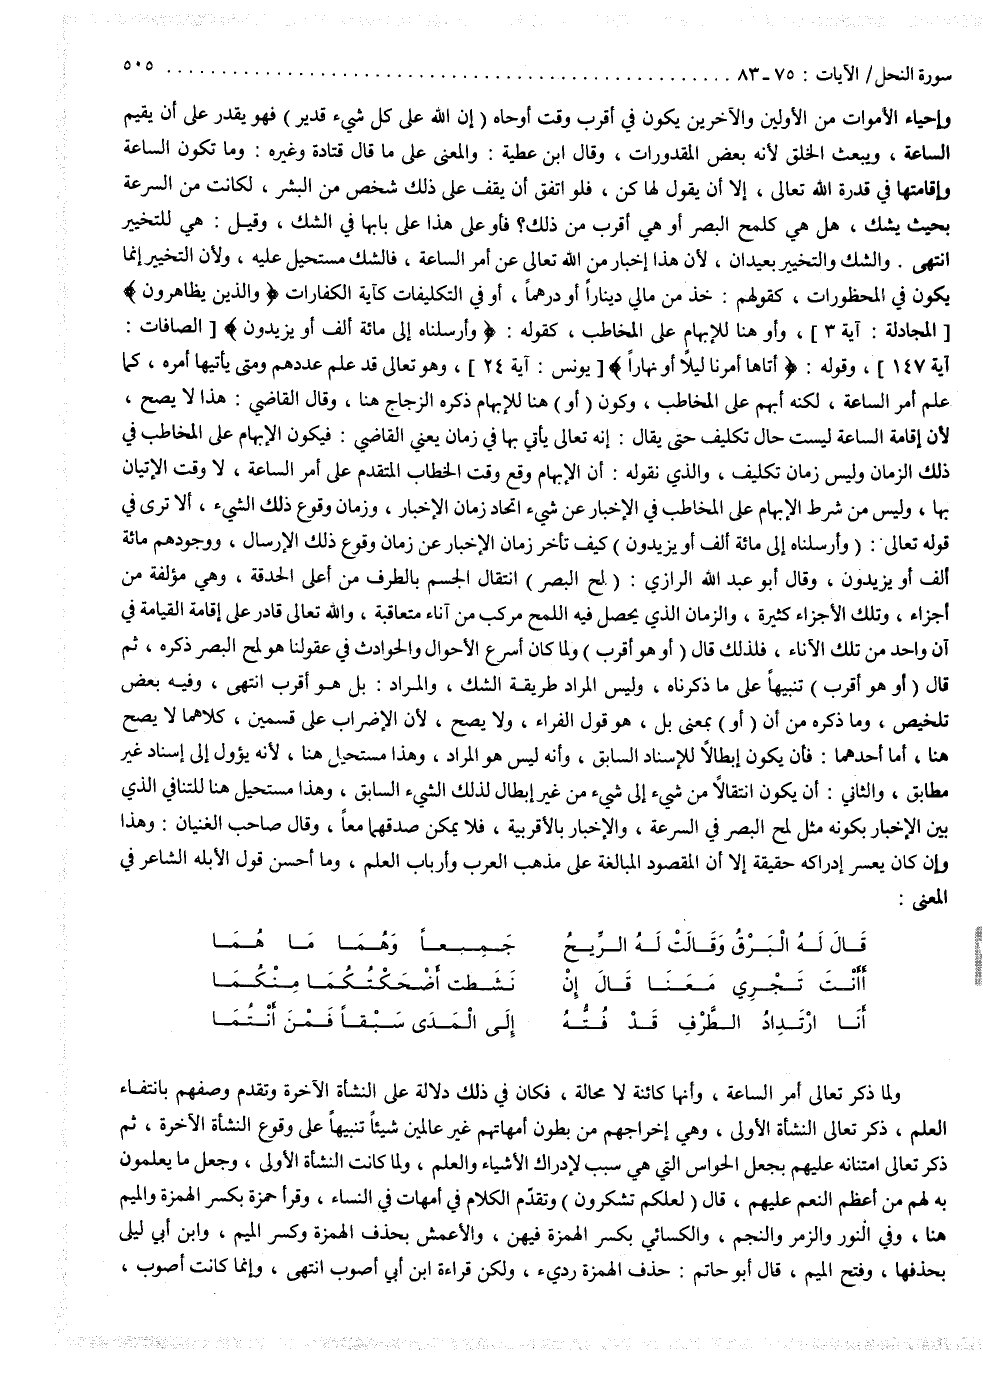 سورة النحل/ الآيات : ٧٥ -٨٣ ............................................................ ٥٠٥
وإحياء الأموات من الأولين والآخرين يكون في أقرب وقت أوحاه ( إن الله على كل شيء قدير ) فهو يقدر على أن يقيم
الساعة ، ويبعث الخلق لأنه بعض المقدورات ، وقال ابن عطية : والمعنى على ما قال قتادة وغيره : وما تكون الساعة
وإقامتها في قدرة الله تعالى ، إلا أن يقول لها كن ، فلو اتفق أن يقف على ذلك شخص من البشر ، لكانت من السرعة
بحيث يشك ، هل هي كلمح البصر أو هي أقرب من ذلك؟ فأو على هذا على بابها في الشك ، وقيل : هي للتخيير
انتهى . والشك والتخيير بعيدان ، لأن هذا إخبار من الله تعالى عن أمر الساعة ، فالشك مستحيل عليه ، ولأن التخيير إنما
يكون في المحظورات ، كقولهم : خذ من مالي ديناراً أو درهماً ، أو في التكليفات كآية الكفارات ﴿ والذين يظاهرون ﴾
[ المجادلة : آية ٣ ] ، وأو هنا للإبهام على المخاطب ، كقوله : ﴿ وأرسلناه إلى مائة ألف أو يزيدون ﴾ [ الصافات :
آية ١٤٧ ] ، وقوله : ﴿ أتاها أمرنا ليلًا أو نهاراً ﴾ [ يونس : آية ٢٤ ] ، وهو تعالى قد علم عددهم ومتى يأتيها أمره ، كما
علم أمر الساعة ، لكنه أبهم على المخاطب ، وكون ( أو ) هنا للإبهام ذكره الزجاج هنا ، وقال القاضي : هذا لا يصح ،
لأن إقامة الساعة ليست حال تكليف حتى يقال : إنه تعالى يأتي بها في زمان يعني القاضي : فيكون الإبهام على المخاطب في
ذلك الزمان وليس زمان تكليف ، والذي نقوله : أن الإبهام وقع وقت الخطاب المتقدم على أمر الساعة ، لا وقت الإتيان
بها ، وليس من شرط الإبهام على المخاطب في الإخبار عن شيء اتحاد زمان الإخبار ، وزمان وقوع ذلك الشيء ، ألا ترى في
قوله تعالى : ( وأرسلناه إلى مائة ألف أو يزيدون ) كيف تأخر زمان الإخبار عن زمان وقوع ذلك الإرسال ، ووجودهم مائة
ألف أو يزيدون ، وقال أبو عبد الله الرازي : ( لمح البصر ) انتقال الجسم بالطرف من أعلى الحدقة ، وهي مؤلفة من
أجزاء ، وتلك الأجزاء كثيرة ، والزمان الذي يحصل فيه اللمح مركب من آناء متعاقبة ، والله تعالى قادر على إقامة القيامة في
آن واحد من تلك الآناء ، فلذلك قال ( أو هو أقرب ) ولما كان أسرع الأحوال والحوادث في عقولنا هو لمح البصر ذكره ، ثم
قال ( أو هو أقرب ) تنبيهاً على ما ذكرناه ، وليس المراد طريقة الشك ، والمراد : بل هو أقرب انتهى ، وفيه بعض
تلخيص ، وما ذكره من أن ( أو) بمعنى بل ، هو قول الفراء ، ولا يصح ، لأن الإضراب على قسمين ، كلاهما لا يصح
هنا ، أما أحدهما : فأن يكون إبطالًا للإسناد السابق ، وأنه ليس هو المراد ، وهذا مستحيل هنا ، لأنه يؤول إلى إسناد غير
مطابق ، والثاني : أن يكون انتقالًا من شيء إلى شيء من غير إبطال لذلك الشيء السابق ، وهذا مستحيل هنا للتنافي الذي
بين الإخبار بكونه مثل لمح البصر في السرعة ، والإخبار بالأقربية ، فلا يمكن صدقهما معاً ، وقال صاحب الغنيان : وهذا
وإن كان يعسر إدراكه حقيقة إلا أن المقصود المبالغة على مذهب العرب وأرباب العلم ، وما أحسن قول الأبله الشاعر في
المعنى :
قَالَ لَهُ الْبَرْقُ وَقَالَتْ لَهُ الرِّيحُ جَمِيعاً وَهُمَا مَا هُمَا
أَأَنْتَ تَجْرِي مَعَنَا قَالَ إِنْ نَشَطت أَضْحَكْتُكُمَا مِنْكُمَا
أَنَا ارْتِدَادُ الطَّرْفِ قَدْ فُتُّهُ إِلَى الْمَدَى سَبْقاً فَمْنَ أَنْتُمَا
ولما ذكر تعالى أمر الساعة ، وأنها كائنة لا محالة ، فكان في ذلك دلالة على النشأة الآخرة وتقدم وصفهم بانتفاء
العلم ، ذكر تعالى النشأة الأولى ، وهي إخراجهم من بطون أمهاتهم غير عالمين شيئاً تنبيهاً على وقوع النشأة الآخرة ، ثم
ذكر تعالى امتنانه عليهم بجعل الحواس التي هي سبب لإدراك الأشياء والعلم ، ولما كانت النشأة الأولى ، وجعل ما يعلمون
به لهم من أعظم النعم عليهم ، قال ( لعلكم تشكرون ) وتقدّم الكلام في أمهات في النساء ، وقرأ حمزة بكسر الهمزة والميم
هنا ، وفي النور والزمر والنجم ، والكسائي بكسر الهمزة فيهن ، والأعمش بحذف الهمزة وكسر الميم ، وابن أبي ليلى
بحذفها ، وفتح الميم ، قال أبو حاتم : حذف الهمزة رديء ، ولكن قراءة ابن أبي أصوب انتهى ، وإنما كانت أصوب ،